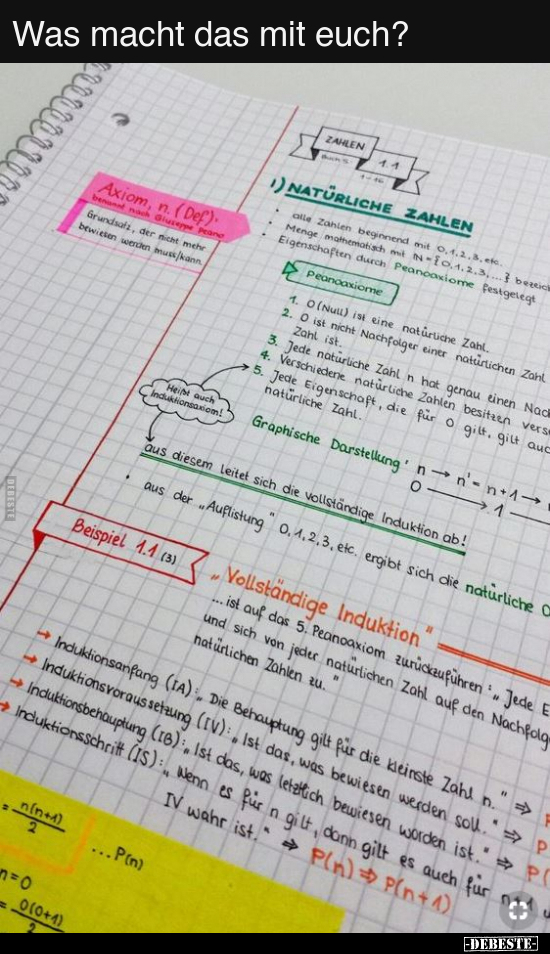 Was macht das mit euch?
ZAHLEN
1.1
1) NATÜRLICHE ZAHLEN
Axiom, n. (Def).
benannt nach Giuseppe Peano
Grundsatz, der nicht mehr
bewiesen werden muss/kann.
alle Zahlen beginnend mit 0,1,2,3, etc.
Menge mathematisch mit N = {0,1,2,3,...}
Eigenschaften durch Peanoaxiome festgelegt
Peanoaxiome
1. 0 (Null) ist eine natürliche Zahl.
2. 0 ist nicht Nachfolger einer natürlichen Zahl
Zahl ist.
3. Jede natürliche Zahl n hat genau einen
4. Verschiedene natürliche Zahlen besitzen
5. Jede Eigenschaft, die für 0 gilt, gilt
natürliche Zahl.
Heißt auch
Induktionsaxiom!
Graphische Darstellung: n → n' = n+1 →
0 → 1
aus diesem leitet sich die vollständige Induktion ab!
• aus der „Auflistung" 0,1,2,3, etc. ergibt sich die natürliche
Beispiel 1.1 (3)
„Vollständige Induktion"
... ist auf das 5. Peanoaxiom zurückzuführen: „Jede
und sich von jeder natürlichen Zahl auf den
natürlichen Zahlen zu."
→ Induktionsanfang (IA): „Die Behauptung gilt für die kleinste Zahl n." ⇒
→ Induktionsvoraussetzung (IV): „Ist das, was bewiesen werden soll." ⇒ P
→ Induktionsbehauptung (IB): „Ist das, was letztlich bewiesen worden ist." ⇒ P(
→ Induktionsschritt (IS): „Wenn es für n gilt, dann gilt es auch für n+1
IV wahr ist." ⇒ P(n) ⇒ P(n+1)
= n(n+1)/2
... P(n)
n=0
= 0(0+1)/2
DEBESTE
-DEBESTE-